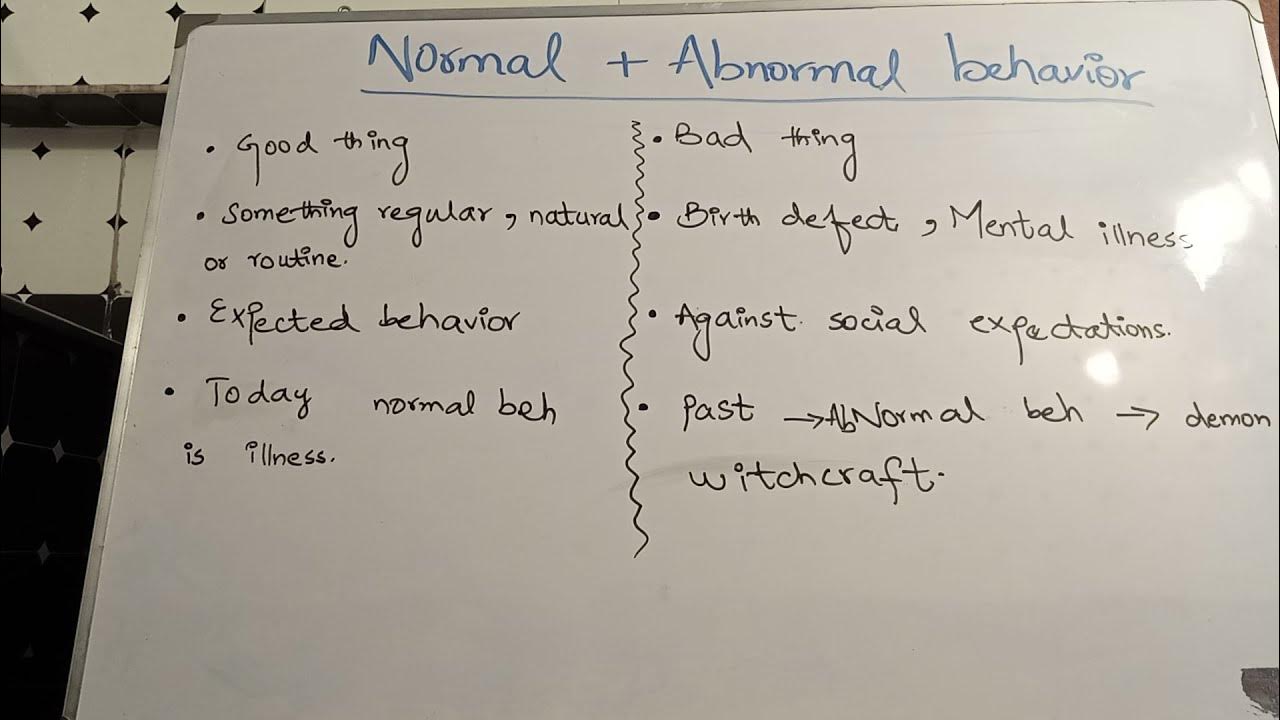 Normal + Abnormal behavior
• Good thing
• Something regular, natural
or routine.
• Expected behavior
• Today normal beh
is illness.
• Bad thing
• Birth defect, Mental illness
• Against social expectations.
• Past → AbNormal beh → demon
witchcraft.